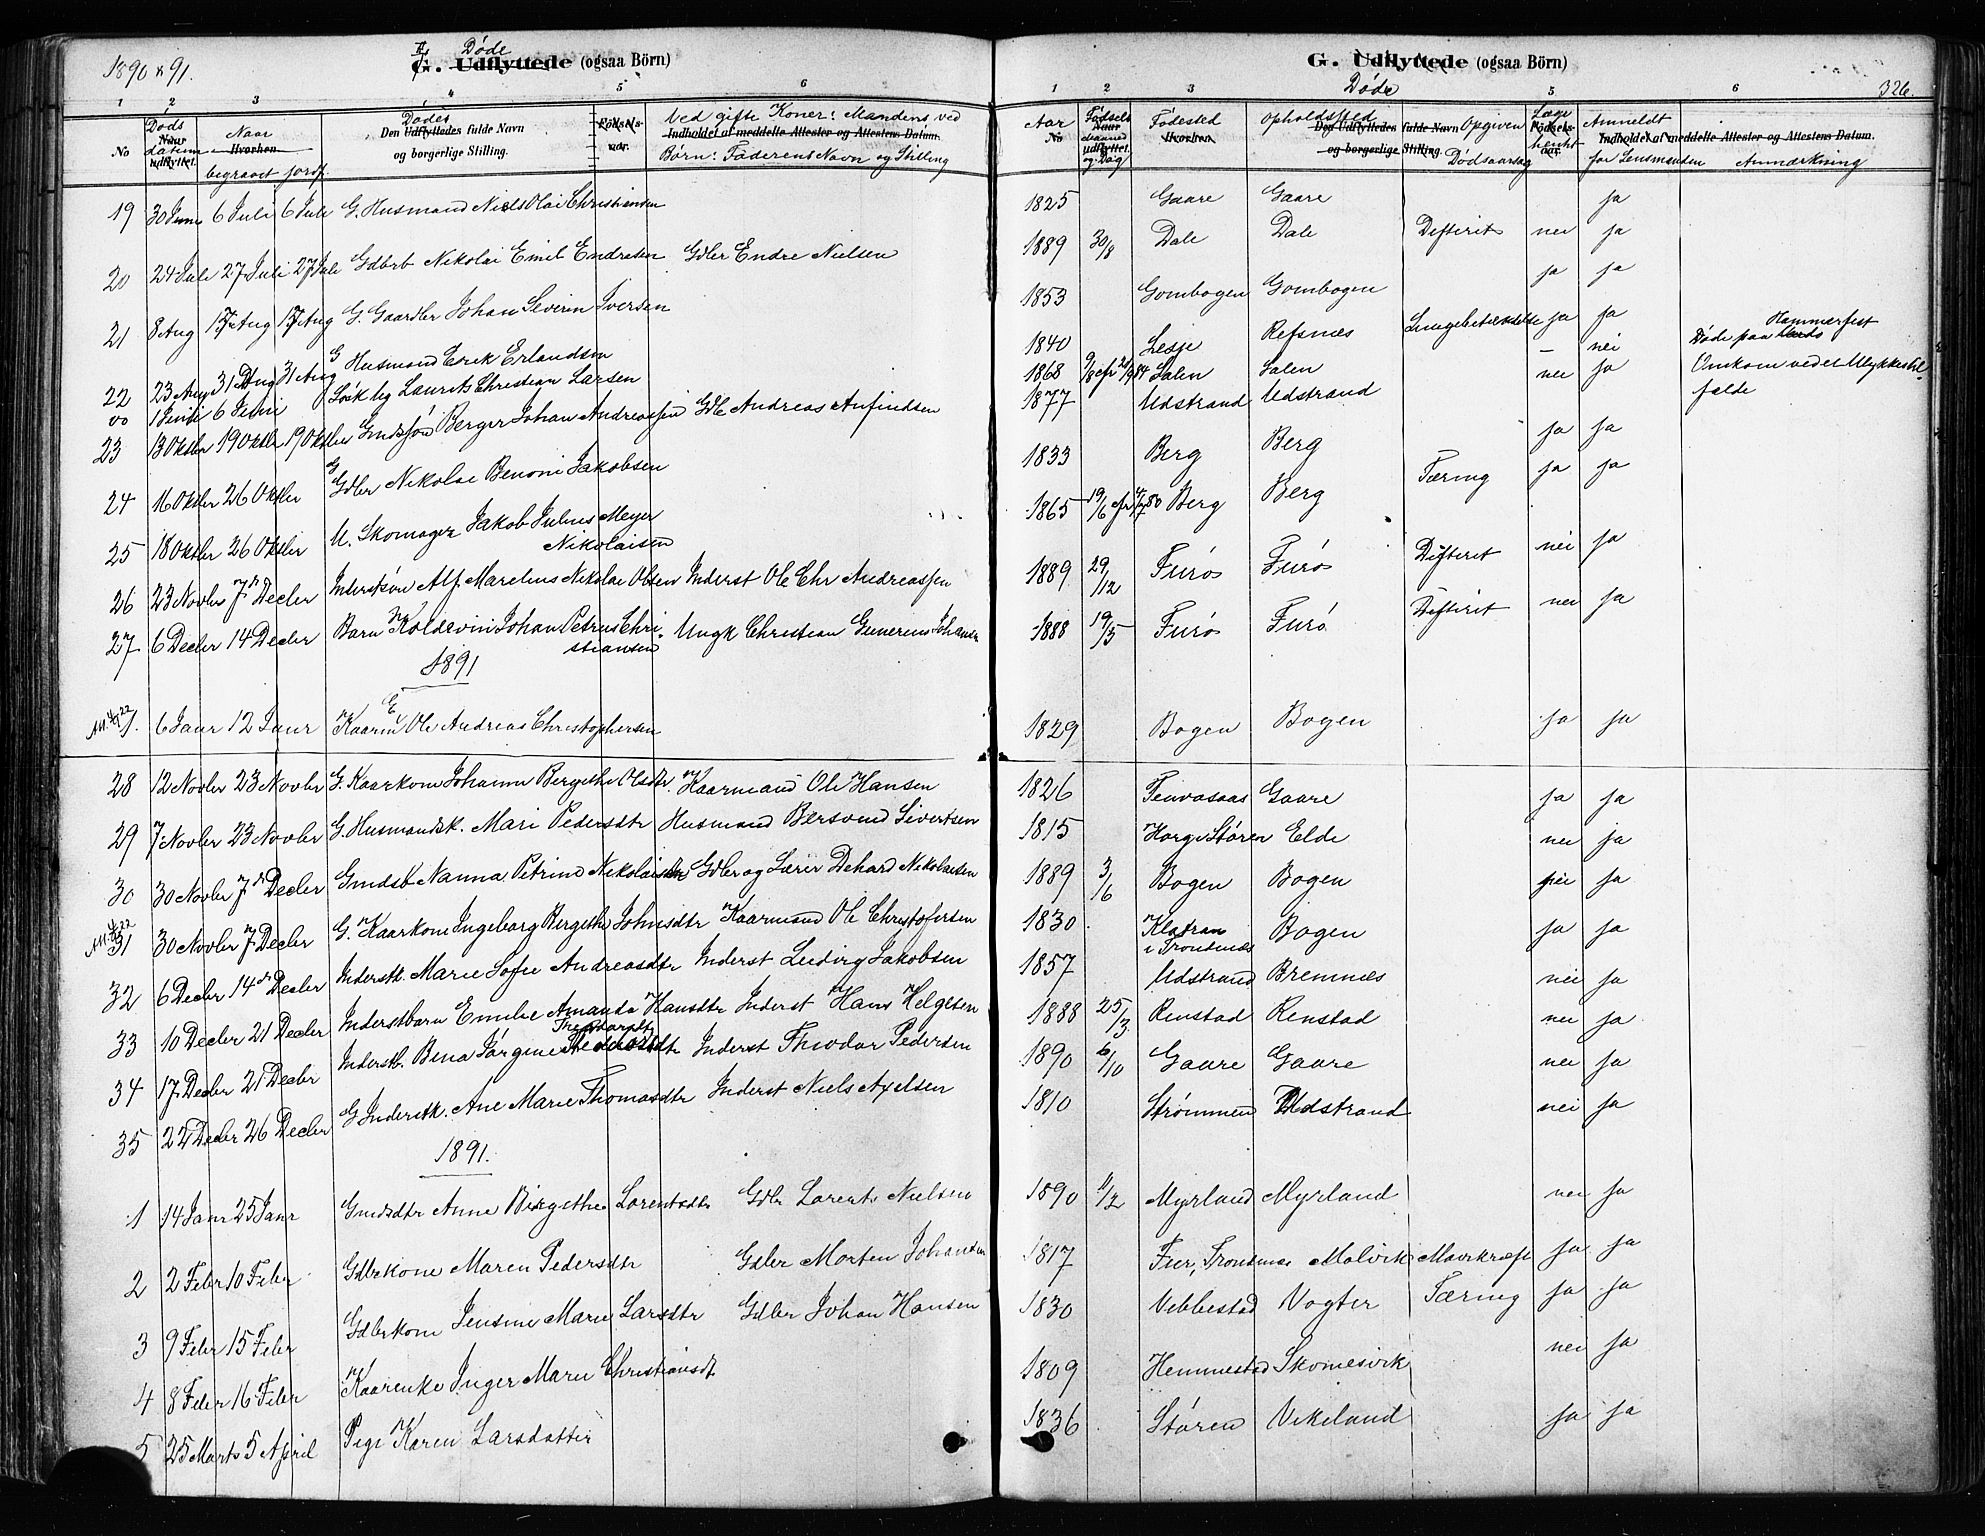 1890 & 91.
F Døde
G. Udflyttede (ogsaa Börn)
1 2 3 4 5 6
No
Døds datum
Naar udflyttet.
Naar
Hvorhen.
begravet jordf.
Dødes
Den Udflyttedes fulde Navn
og borgerlige Stilling.
Födsels-
aar.
Ved gifte Koner: Mandens ved
Indholdet af meddelte Attester og Attestens Datum.
Børn: Faderens Navn og Stilling
19 30 Juni 6 Juli 6 Juli G. Husmand Niels Olai Christiansen
20 24 Juli 27 Juli 27 Juli Gdbrb Nikolai Emil Endresen Gdbr Endre Nielsen
21 8 Aug 17 Aug 17 Aug G. Gaardbr Johan Severin Iversen
22 23 Aug 31 Aug 31 Aug G Husmand Erik Erlandsen
00 1 Juni 6 Juni Laurits Christian Larsen
23 13 Oktbr 19 Oktbr 19 Oktbr Gmdssøn Berger Johan Andreassen Gdbr Andreas Anfindsen
24 16 Oktbr 26 Oktbr G Gdbr Nikolai Benoni Jakobsen
25 18 Oktbr 26 Oktbr U. Skomager Jakob Julius Meyer
Nikolaisen
26 23 Novbr 7 Decbr Inderstsøn Alf Marelius Nikolai Olsen Inderst Ole Chr Andreassen
27 6 Decbr 14 Decbr Barn Koldevin Johan Petrus Chri- Ungk Christian Gunerius Johansn
stiansen
1891
1. 6 Jaar 12 Janr E Kaarm Ole Andreas Christophersen
28 12 Novbr 23 Novbr G. Kaarkone Johanna Bergethe Olsdtr Kaarmand Ole Hansen
29 7 Novbr 23 Novbr G. Husmandsk. Mari Pedersdtr Husmand Bersvend Sivertsen
30 30 Novbr 7 Decbr Gmdsb Nanna Petrine Nikolaisen Gdbr og Lærer Dehard Nikolaisen
31 30 Novbr 7 Decbr G. Kaarkone Ingeborg Bergethe Johnsdtr Kaarmand Ole Christofersen
32 6 Decbr 14 Decbr Inderstk. Marie Sofie Andreasdtr Inderst Ludvig Jakobsen
33 10 Decbr 21 Decbr Inderstbarn Emilie Amanda Hansdtr Inderst Hans Helgesen
34 17 Decbr 21 Decbr Inderstb. Bena Jørgine Theodorsdtr Inderst Theodor Pedersen
35 22 Decbr 26 Decbr G Inderstk. Ane Marie Thomasdtr Inderst Niels Axelsen
1891.
1 14 Janr 25 Janr Gmdsdtr Anne Birgethe Lorentsdtr Gdbr Lorents Nielsen
2 2 Febr 10 Febr Gdbrkone Maren Pedersdtr Gdbr Morten Johansen
3 9 Febr 15 Febr Gdbrkone Jensine Marie Larsdtr Gdbr Johan Hansen
4 8 Febr 16 Febr Kaarenke Inger Marie Christiansdt
5 25 Marts 5 April Pige Karen Larsdatter
G. Udflyttede (ogsaa Börn)
Døde
326.
1 2 3 5 6
Aar
No
Fødsels
Naar
Maaned
udflyttet.
og Dag
Fødested
Hvorhen.
Opholdssted
Den Udflyttedes fulde Navn
og borgerlige Stilling.
Opgiven
Dødsaarsag
Læge
Födsels-
aar.
hentet
Anmeldt
Indholdet af meddelte Attester og Attestens Datum.
for Lensmanden Anmærkning
1825 Gaare Gaare ja
1889 30/8 Dale Dale Difterit nei ja
1853 Gombogen Gombogen ja ja
1840 Lesje Refsnes Lungebetændelse ja ja
1868 Salen Salen – nei Døde paa Hammerfest
1877 Udstrand Udstrand nei ja Omkom ved et Ulykkestil-
fælde
1833 Berg Berg ja ja
1865 Berg Berg Tæring ja ja
1889 29/12 Furø Furø Difterit nei ja
1888 19/5 Furø Furø Difterit nei ja
1829 Bogen Bogen ja ja
1826 Gaare ja ja
1815 Støren Elde nei ja
1889 3/6 Bogen Bogen nei ja
1830 Klatran
i Trondenæs Bogen ja ja
1857 Udstrand Bremnæs nei ja
1888 25/3 Renstad Renstad nei ja
1890 6/10 Gaare Gaare nei ja
1810 Strømmen Udstrand nei ja
1890 11/2 Myrland Myrland nei ja
1817 Fur, Trondenæs Malvik Mavekræft ja ja
1830 Vebbestad Vogter Tæring ja ja
1809 Hemmestad Skomesvik nei ja
1836 Støren Vikeland ja ja